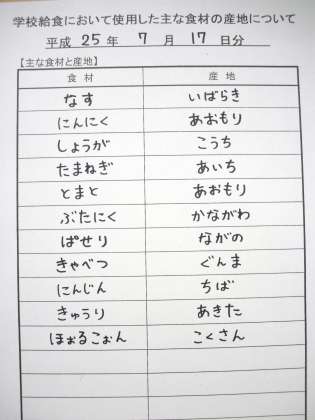 学校給食において使用した主な食材の産地について
平成 25 年 7 月 17 日分
【主な食材と産地】
食材 産地
なす いばらき
にんにく あおもり
しょうが こうち
たまねぎ あいち
とまと あおもり
ぶたにく かながわ
ぱせり ながの
きゃべつ ぐんま
にんじん ちば
きゅうり あきた
ほぉるこぉん こくさん